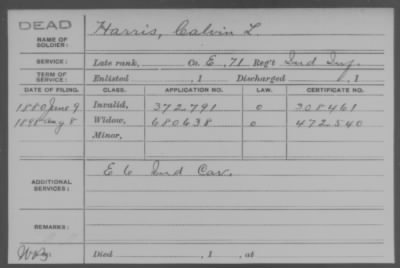 DEAD
NAME OF SOLDIER: Harris, Calvin L.
SERVICE: Late rank, Co. E, 71 Reg't Ind Inf.
TERM OF SERVICE: Enlisted , 1 Discharged , 1
DATE OF FILING. CLASS. APPLICATION NO. LAW. CERTIFICATE NO.
1880 June 9 Invalid, 372.791 0 308461
1898 Aug 8 Widow, 680638 0 472.540
Minor,
ADDITIONAL SERVICES: E 6 Ind Cav.
REMARKS:
Died , 1 , at